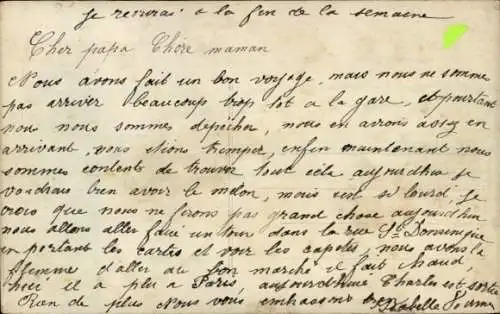 Je reverai à la fin de la semaine
Cher papa Chère maman
Nous avons fait un bon voyage, mais nous ne somme
pas arriver beaucoup trop tot a la gare, et pourtant
nous nous sommes depecher, nous en avions assez en
arrivant, vous etions tremper, enfin maintenant nous
sommes contents de trouver tout cela aujourdhui je
voudrais bien avoir le melon, mais si lourd, Je
crois que nous ne ferons pas grand chose aujourd'hui
nous allons aller faire un tour dans la rue St Dominique
en portant les cartes et voir les capotes, nous avons la
flemme d'aller au bon marché il fait chaud,
hier il a plu a Paris, aujourd'hui Charles est sortie
Rien de plus Nous vous embrassons
Isabelle